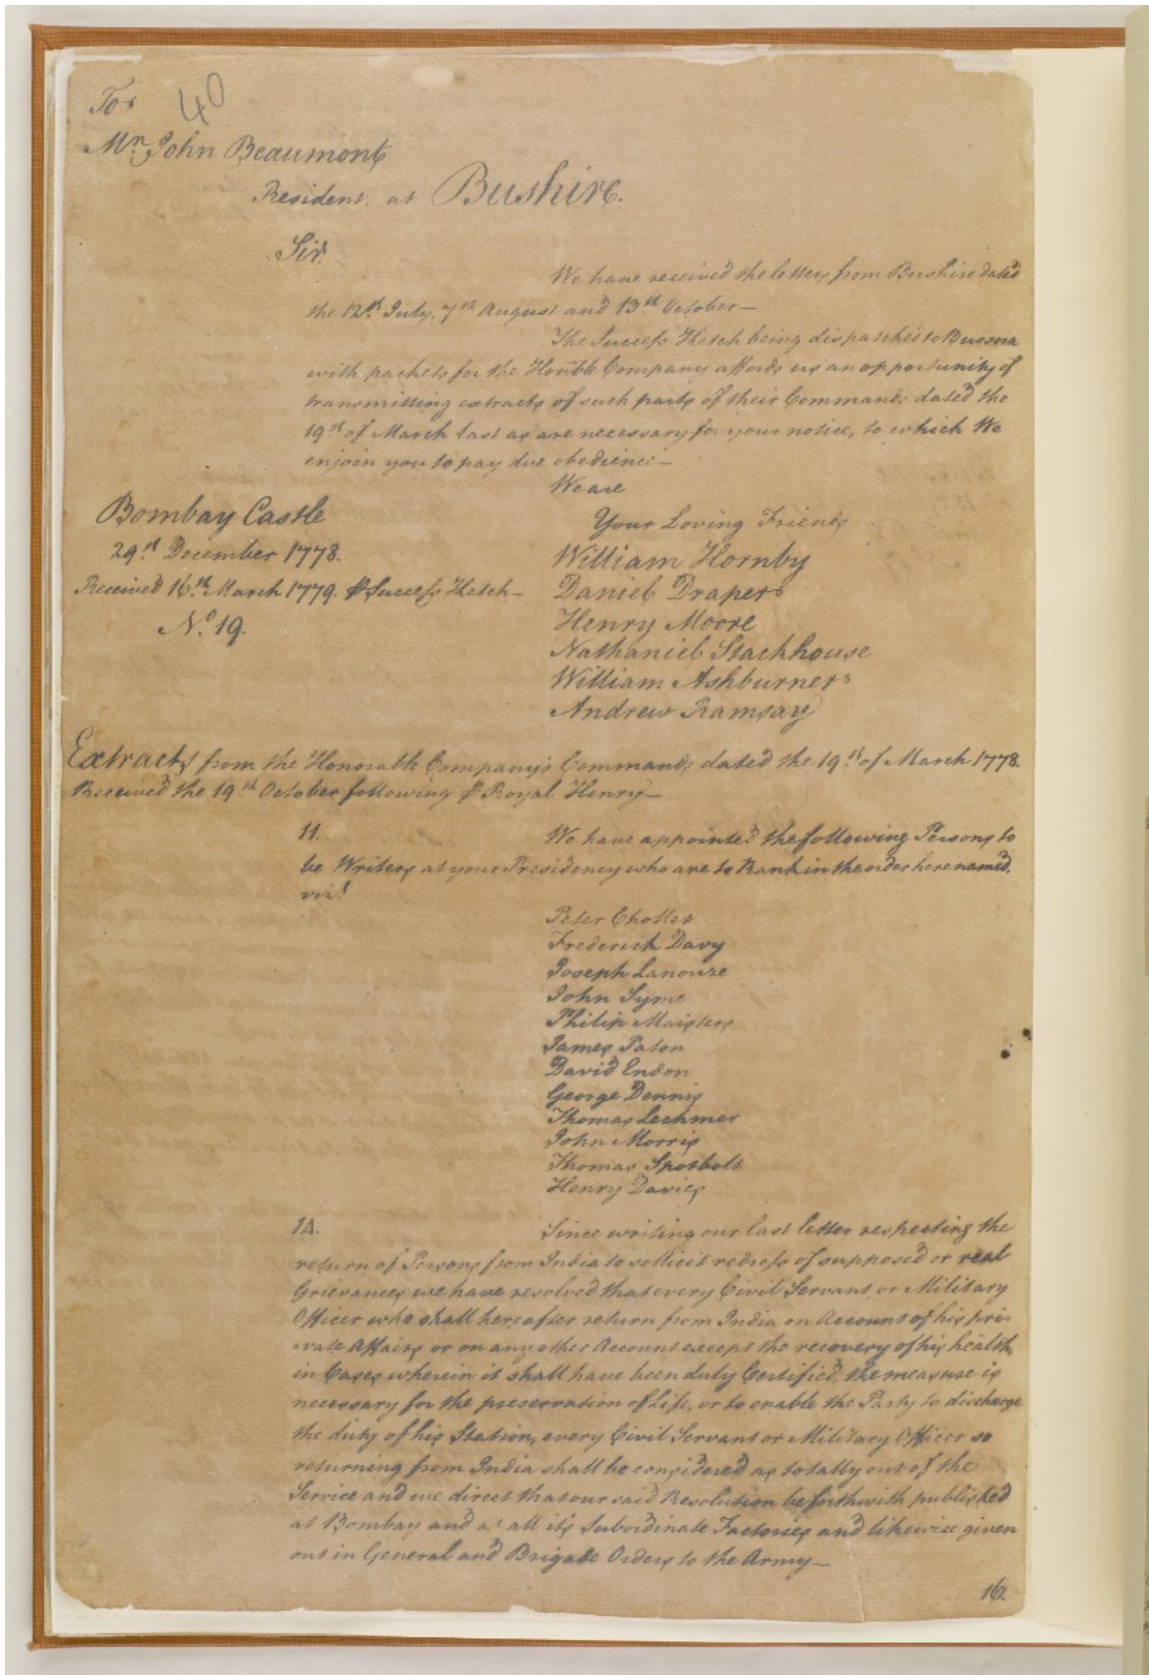 To
40
Mr. John Beaumont
Resident at Bushire.
Sir,
We have received the letters from Bushire dated
the 12th July, 7th August and 13th October—
The Success Ketch being dispatched to Bussora
with packets for the Honble Company affords us an opportunity of
transmitting extracts of such parts of their Commands dated the
19th of March last as are necessary for your notice, to which We
enjoin you to pay due obedience—
We are
Your Loving Friends
Bombay Castle
29th December 1778.
Received 16th March 1779. ⅌ Success Ketch—
No. 19.
William Hornby
Daniel Draper
Henry Moore
Nathaniel Stackhouse
William Ashburner
Andrew Ramsay
Extracts from the Honorable Company's Commands dated the 19th of March 1778.
Received the 19th October following ⅌ Royal Henry—
11. We have appointed the following Persons to
be Writers at your Presidency who are to Rank in the order here named,
vizt
Peter Chollet
Frederick Davy
Joseph Lanouze
John Syme
Philip Maisters
James Paton
David Endon
George Dennis
Thomas Lechmer
John Morris
Thomas Spotbolt
Henry Davies
14. Since writing our last letter respecting the
return of Persons from India to sollicit redress of supposed or real
Grievances we have resolved that every Civil Servant or Military
Officer who shall hereafter return from India on Account of his pri-
-vate Affairs or on any other Account except the recovery of his health,
in Cases wherein it shall have been duly Certified, the measure is
necessary for the preservation of Life, or to enable the Party to discharge
the duty of his Station, every Civil Servant or Military Officer so
returning from India shall be considered as totally out of the
Service and we direct that our said Resolution be forthwith published
at Bombay and at all its Subordinate Factories and likewise given
out in General and Brigade Orders to the Army—
16.